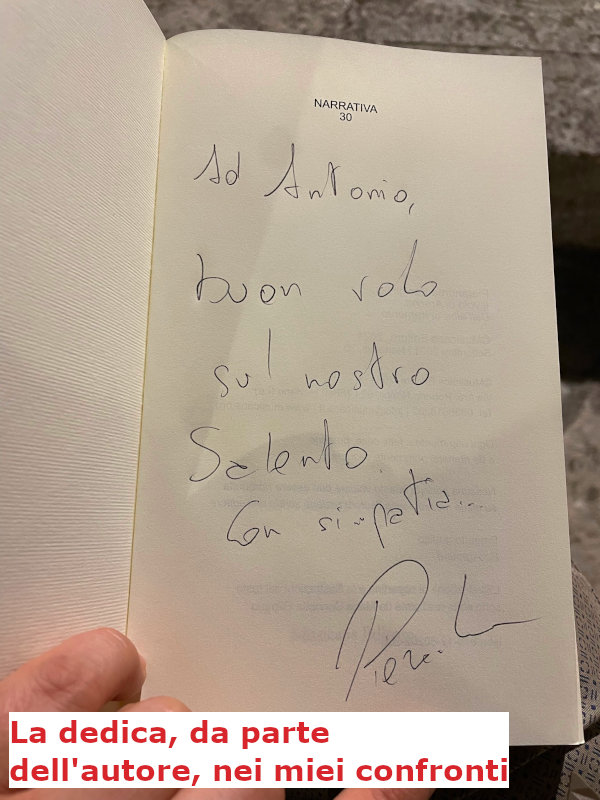 NARRATIVA
30
Ad Antonio,
buon volo
sul nostro
Salento.
Con simpatia...
La dedica, da parte
dell'autore, nei miei confronti